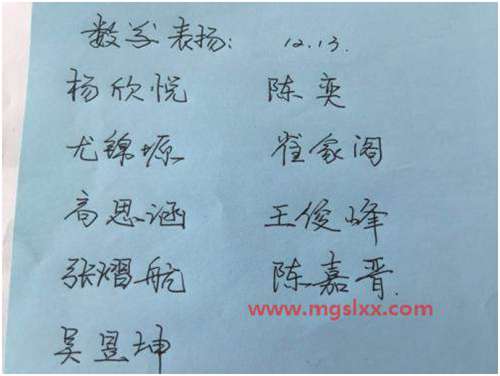 数学表扬: 12.13.
杨欣悦 陈奕
尤锦塬 崔家阁
高思涵 王俊峰
张熠航 陈嘉晋.
www.mgslxx.com
吴昱坤